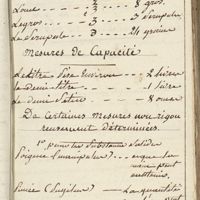 L'once — 8 gros.
Le gros — 3 — 3 Scrupules
Le Scrupule — 24 grains
Mesures de Capacité
Le Litre pèse environ — 2 livres
Le demi-litre — 1 livre
Le demi Setier — 8 onces
De Certaines mesures non rigou
reusement déterminées.
1° pour les Substances Solides
Poignée (manipulus) ... ce que la
main peut
contenir.
Pincée (Pugillus) — La quantité